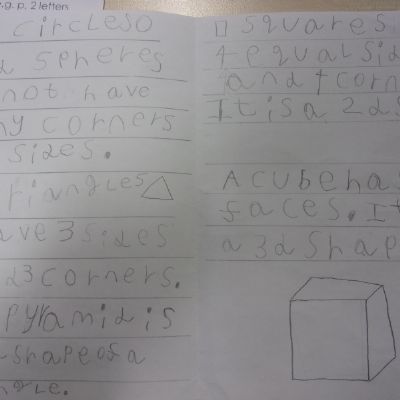 e.g. p. 2 letters
circles
spheres
not have
ny corners
sides.
riangles
ave 3 sides
d 3 corners.
pyramid is
shape of a
ngle.
squares
4 equal sid
and 4 corn
It is a 2d s
A cube ha
faces. It
a 3d shap